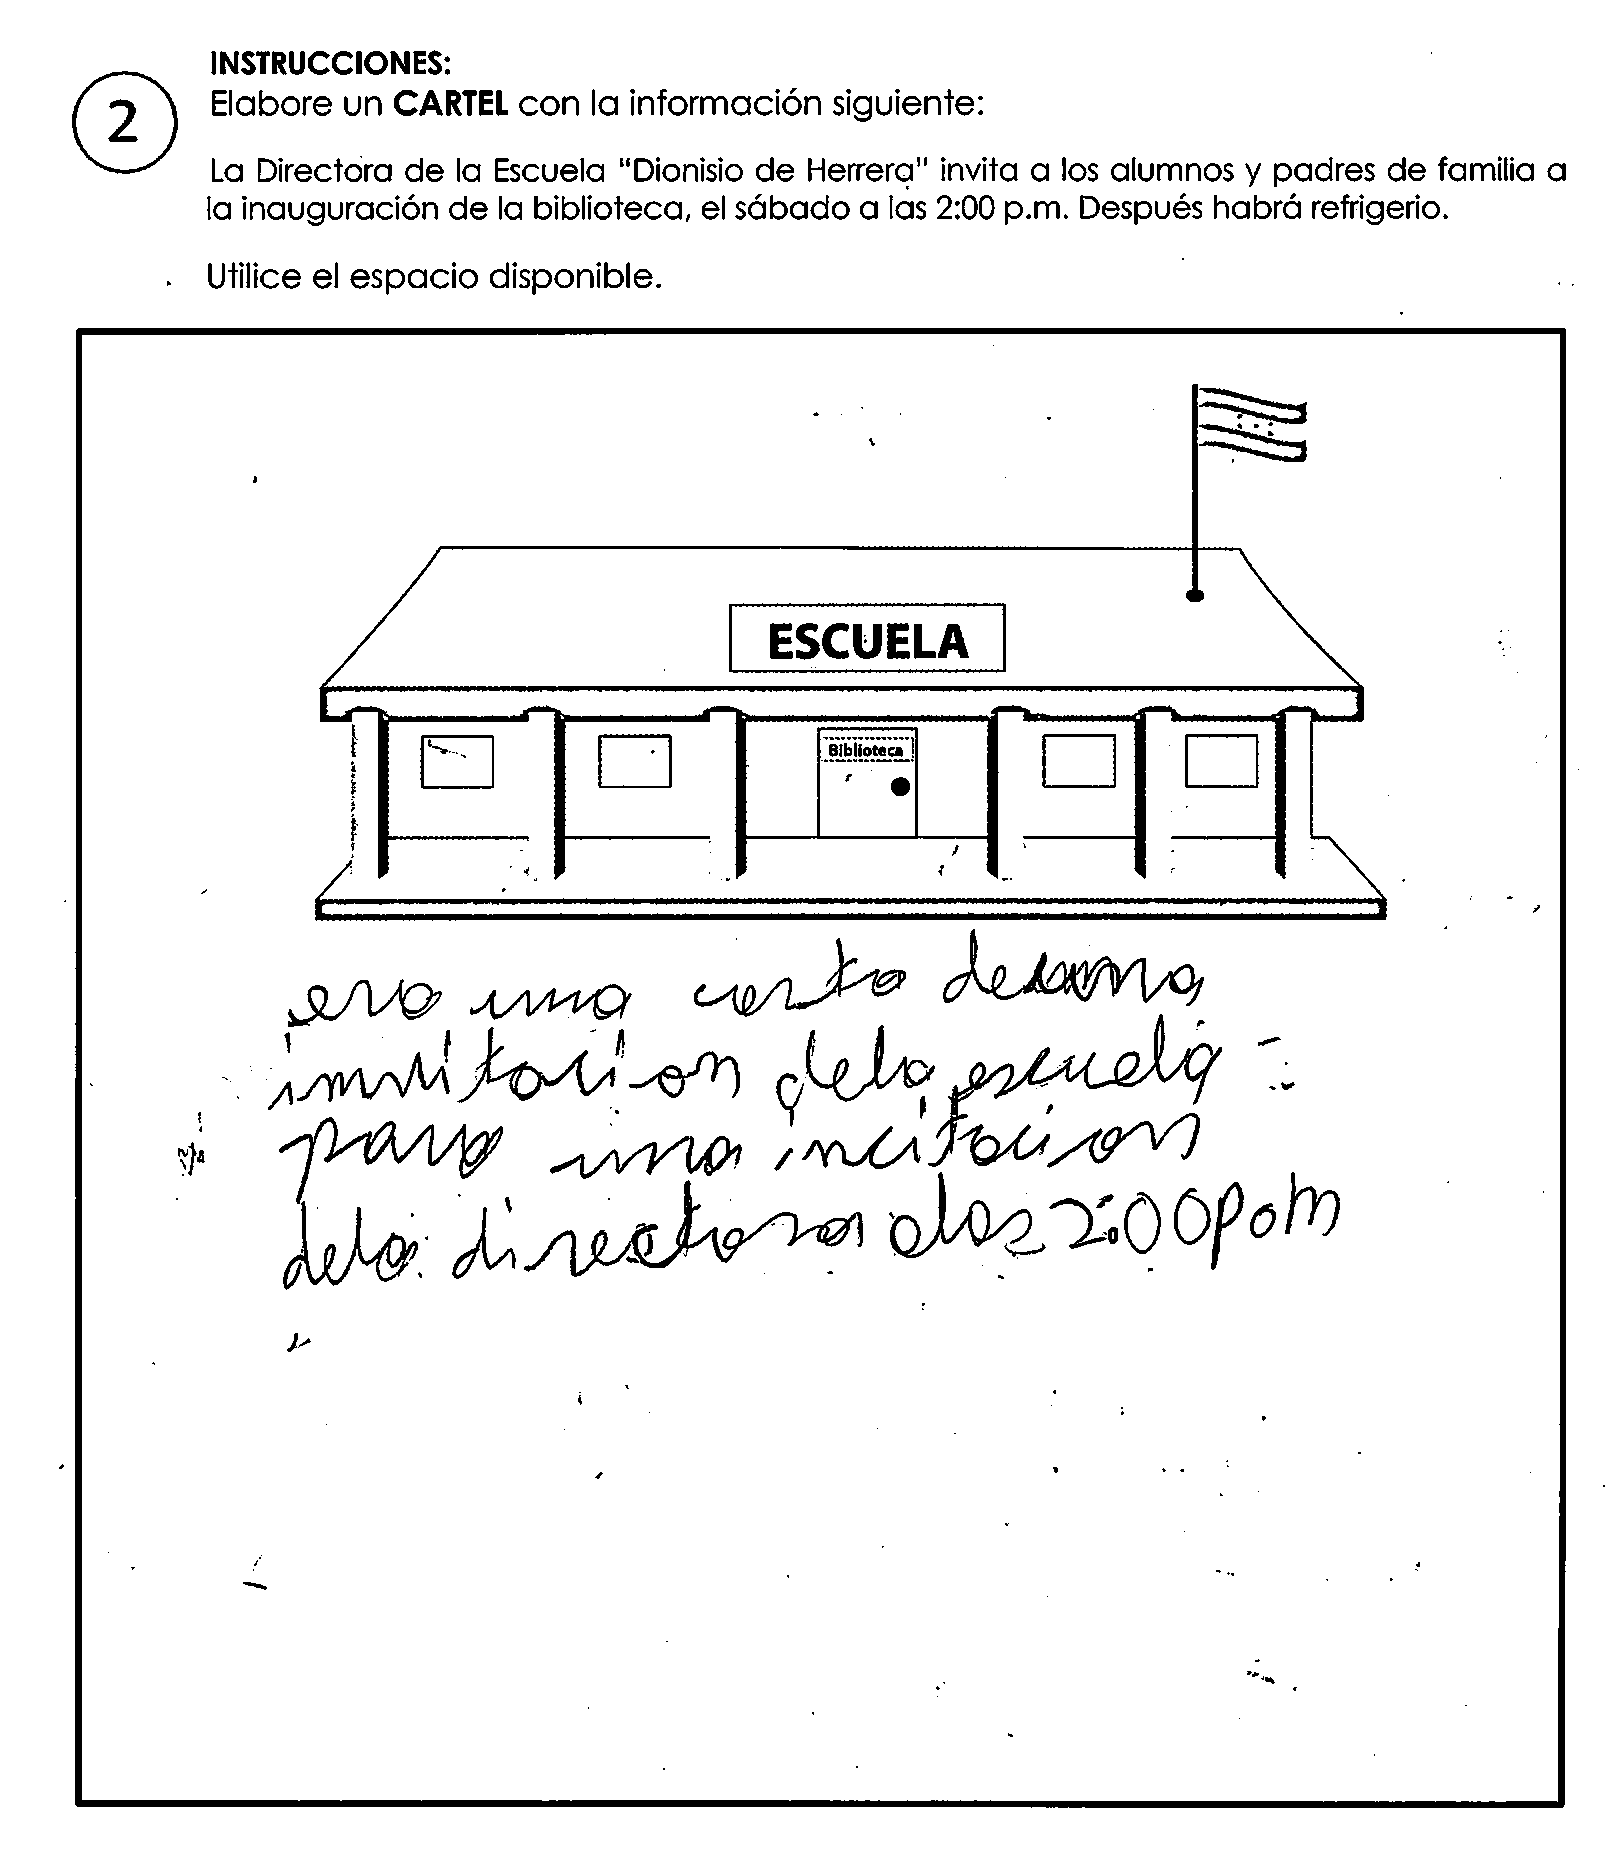 INSTRUCCIONES:
2
Elabore un CARTEL con la información siguiente:
La Directora de la Escuela "Dionisio de Herrera" invita a los alumnos y padres de familia a
la inauguración de la biblioteca, el sábado a las 2:00 p.m. Después habrá refrigerio.
Utilice el espacio disponible.
ESCUELA
Biblioteca
era una carta
invitacion dela escuela
para una incitacion
dela directora alas 2:00 p.m